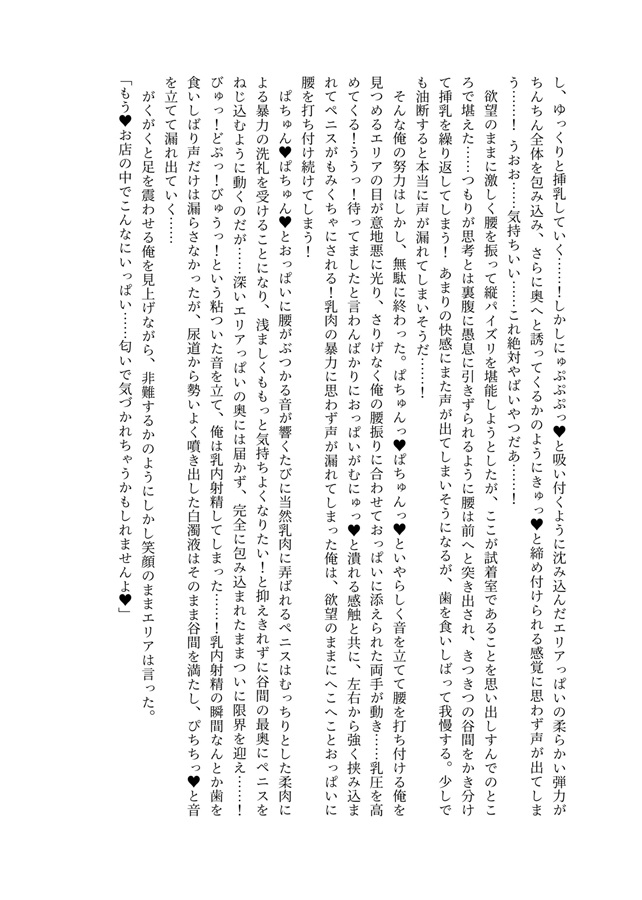 し、ゆっくりと挿乳していく……！しかしにゅぷぷぷっ♥と吸い付くように沈み込んだエリアっぱいの柔らかい弾力が
ちんちん全体を包み込み、さらに奥へと誘ってくるかのようにきゅっ♥と締め付けられる感覚に思わず声が出てしま
う……！　うおお……気持ちいい……これ絶対やばいやつだあ……！
　欲望のままに激しく腰を振って縦パイズリを堪能しようとしたが、ここが試着室であることを思い出しすんでのとこ
ろで堪えた……つもりが思考とは裏腹に愚息に引きずられるように腰は前へと突き出され、きつきつの谷間をかき分け
て挿乳を繰り返してしまう！　あまりの快感にまた声が出てしまいそうになるが、歯を食いしばって我慢する。少しで
も油断すると本当に声が漏れてしまいそうだ……！
　そんな俺の努力はしかし、無駄に終わった。ぱちゅんっ♥ぱちゅんっ♥といやらしく音を立てて腰を打ち付ける俺を
見つめるエリアの目が意地悪に光り、さりげなく俺の腰振りに合わせておっぱいに添えられた両手が動き……乳圧を高
めてくる！ううっ！待ってましたと言わんばかりにおっぱいがむにゅっ♥と潰れる感触と共に、左右から強く挟み込ま
れてペニスがもみくちゃにされる！乳肉の暴力に思わず声が漏れてしまった俺は、欲望のままにへこへことおっぱいに
腰を打ち付け続けてしまう！
　ぱちゅん♥ぱちゅん♥とおっぱいに腰がぶつかる音が響くたびに当然乳肉に弄ばれるペニスはむっちりとした柔肉に
よる暴力の洗礼を受けることになり、浅ましくももっと気持ちよくなりたい！と抑えきれずに谷間の最奥にペニスを
ねじ込むように動くのだが……深いエリアっぱいの奥には届かず、完全に包み込まれたままついに限界を迎え……！
びゅっ！どぷっ！びゅうっ！という粘ついた音を立て、俺は乳内射精してしまった……！乳内射精の瞬間なんとか歯を
食いしばり声だけは漏らさなかったが、尿道から勢いよく噴き出した白濁液はそのまま谷間を満たし、ぴちちっ♥と音
を立てて漏れ出ていく……
　がくがくと足を震わせる俺を見上げながら、非難するかのようにしかし笑顔のままエリアは言った。
「もう♥お店の中でこんなにいっぱい……匂いで気づかれちゃうかもしれませんよ♥」